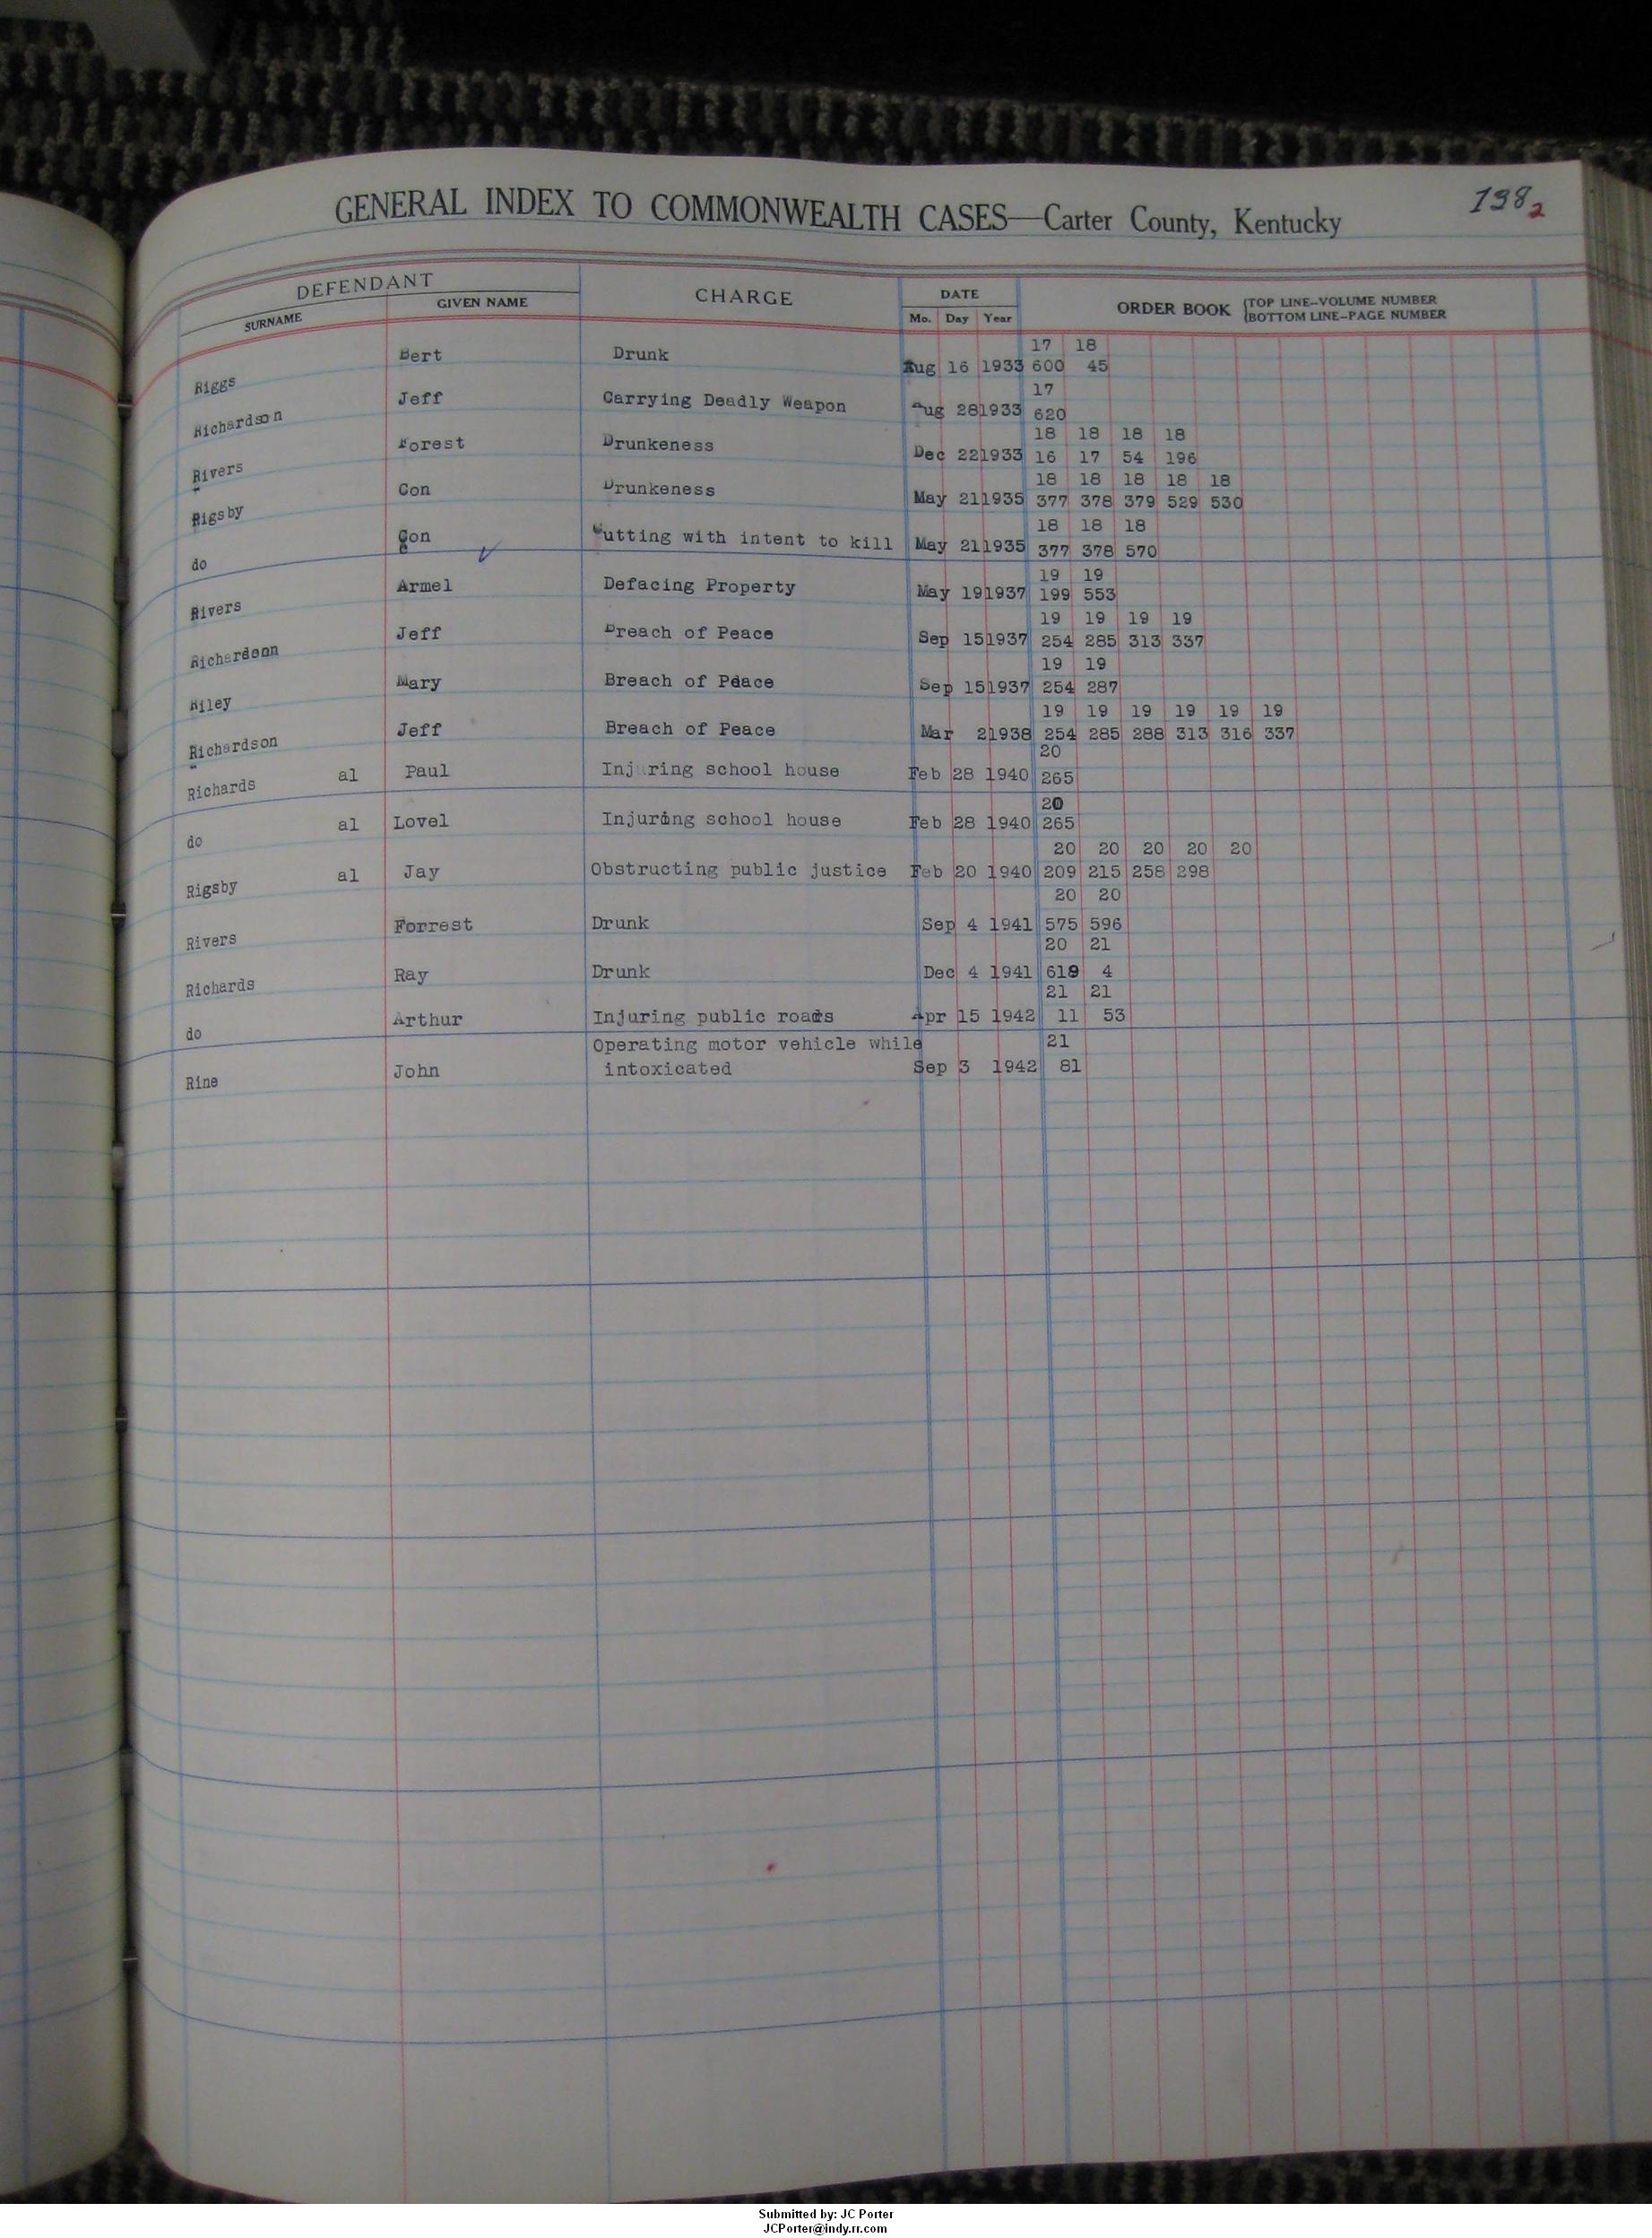 GENERAL INDEX TO COMMONWEALTH CASES—Carter County, Kentucky
138 2
DEFENDANT CHARGE DATE ORDER BOOK {TOP LINE—VOLUME NUMBER
SURNAME GIVEN NAME Mo. Day Year BOTTOM LINE—PAGE NUMBER
17 18
Riggs Bert Drunk Aug 16 1933 600 45
17
Richardson Jeff Carrying Deadly Weapon Aug 28 1933 620
18 18 18 18
Rivers Forest Drunkeness Dec 22 1933 16 17 54 196
18 18 18 18 18
Rigsby Con Drunkeness May 21 1935 377 378 379 529 530
18 18 18
do Con Cutting with intent to kill May 21 1935 377 378 570
19 19
Rivers Armel Defacing Property May 19 1937 199 553
19 19 19 19
Richardson Jeff Breach of Peace Sep 15 1937 254 285 313 337
19 19
Riley Mary Breach of Peace Sep 15 1937 254 287
19 19 19 19 19 19
Richardson Jeff Breach of Peace Mar 2 1938 254 285 288 313 316 337
20
Richards al Paul Injuring school house Feb 28 1940 265
20
do al Lovel Injuring school house Feb 28 1940 265
20 20 20 20 20
Rigsby al Jay Obstructing public justice Feb 20 1940 209 215 258 298
20 20
Rivers Forrest Drunk Sep 4 1941 575 596
20 21
Richards Ray Drunk Dec 4 1941 4
21 21
do Arthur Injuring public roads Apr 15 1942 11 53
Operating motor vehicle while 21
Rine John intoxicated Sep 3 1942 81
Submitted by: JC Porter
JCPorter@indy.rr.com